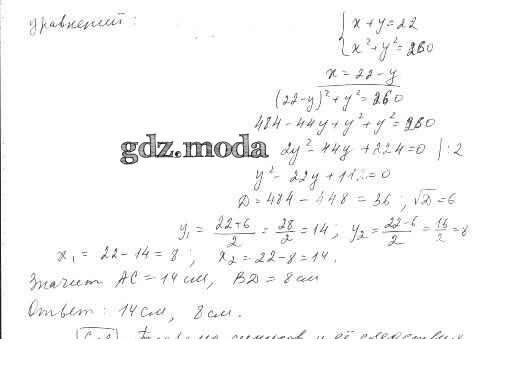 уравнений:
{ x + y = 22
x² + y² = 260
x = 22 - y
(22-y)² + y² = 260
484 - 44y + y² + y² = 260
gdz.moda
2y² - 44y + 224 = 0 | :2
y² - 22y + 112 = 0
D = 484 - 448 = 36; √D = 6
y₁ = (22+6)/2 = 28/2 = 14; y₂ = (22-6)/2 = 16/2 = 8
x₁ = 22 - 14 = 8; x₂ = 22 - 8 = 14.
Значит AC = 14 см, BD = 8 см
Ответ: 14 см, 8 см.